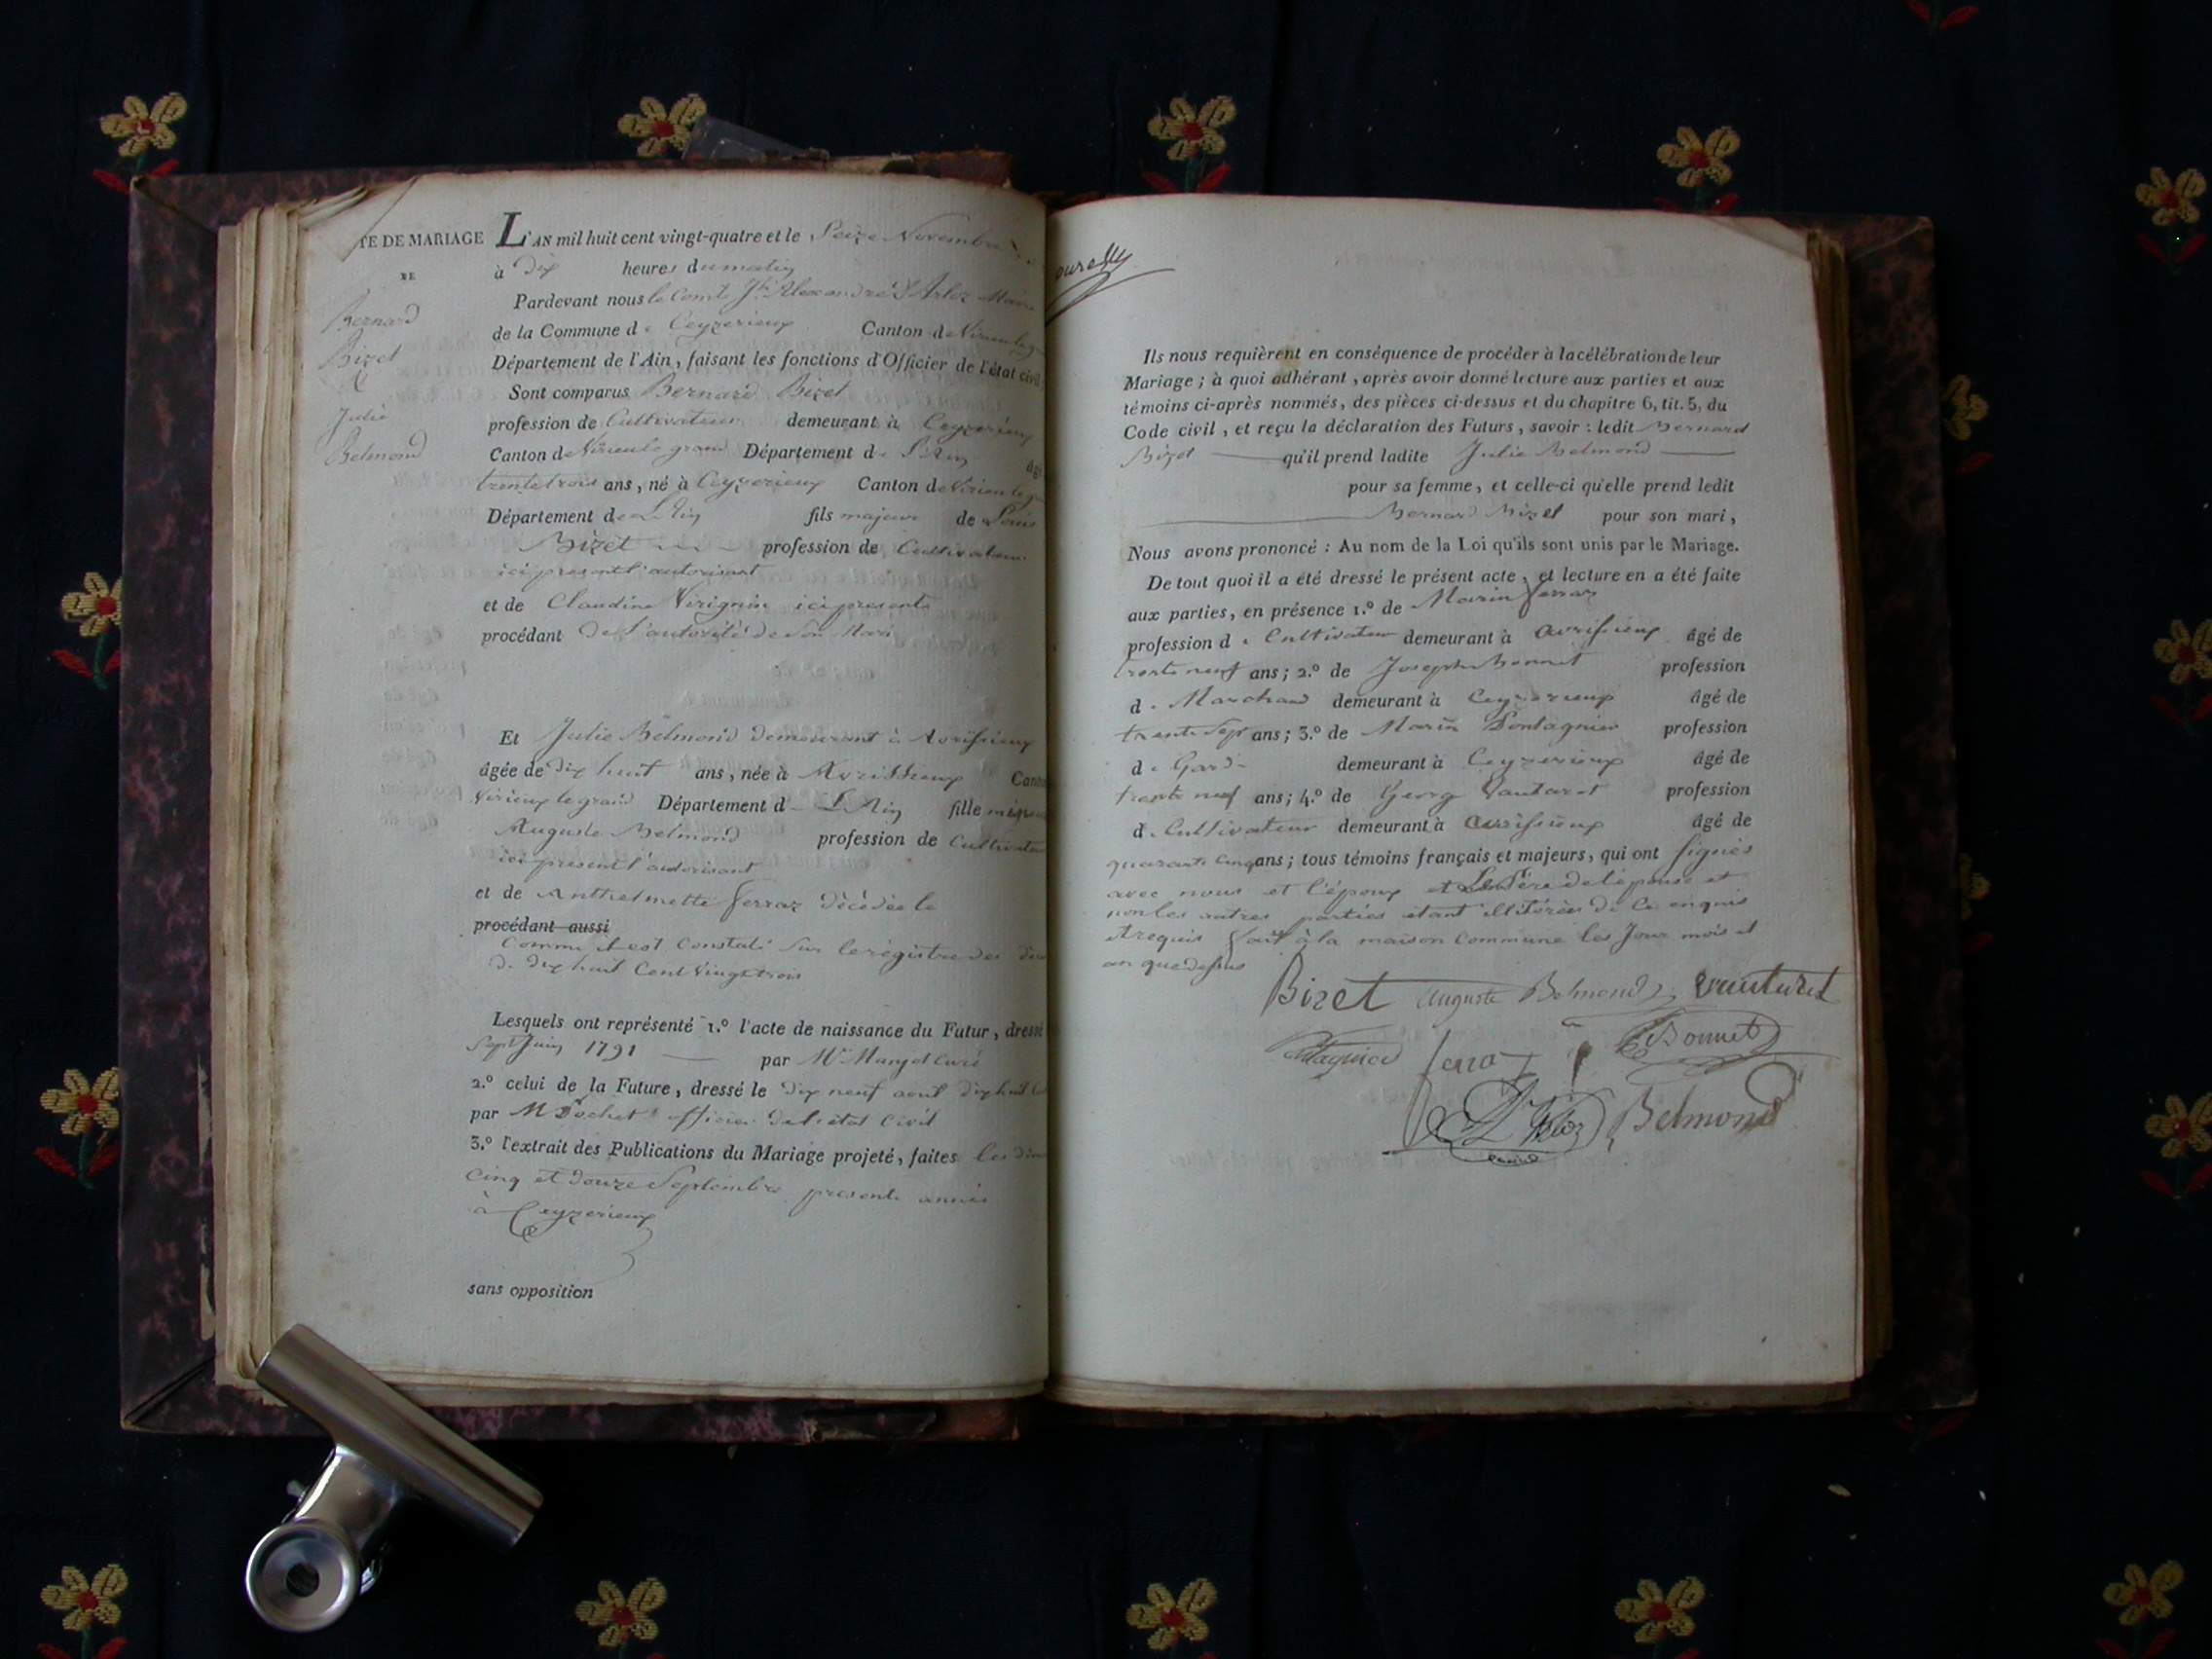 TE DE MARIAGE
DE
Bernard
Bizet
&
Julie
Belmond
L'AN mil huit cent vingt-quatre et le Seize Novembre
à dix heures du matin
Pardevant nous le Comte Jh Alexandre D'Arloz Maire
de la Commune de Ceyzerieux Canton de Virieu le g
Département de l'Ain, faisant les fonctions d'Officier de l'état civil
Sont comparus Bernard Bizet
profession de Cultivateur demeurant à Ceyzerieux
Canton de Virieu le grand Département de L'Ain âgé
trente trois ans, né à Ceyzerieux Canton de Virieu le g
Département de L'Ain fils majeur de Louis
Bizet profession de Cultivateur
ici present l'autorisant
et de Claudine Virignin ici presente
procédant de l'autorité de Son Mari
Et Julie Belmond demeurant à Avrissieux
âgée de dix huit ans, née à Avrissieux Canton
Virieux le grand Département de L'Ain fille mineure
Auguste Belmond profession de Cultivateur
ici present l'autorisant
et de Anthelmette Ferraz décédée le
procédant aussi
comme il est Constaté Sur le registre des
de dix huit Cent Vingt trois
Lesquels ont représenté 1.° l'acte de naissance du Futur, dressé
Sept Juin 1791 par Mr Curé
2.° celui de la Future, dressé le dix neuf aout dix huit
par M officier de l'état Civil
3.° l'extrait des Publications du Mariage projeté, faites les
cinq et douze Septembre presente année
à Ceyzerieux
sans opposition
Ils nous requièrent en conséquence de procéder à la célébration de leur
Mariage ; à quoi adhérant, après avoir donné lecture aux parties et aux
témoins ci-après nommés, des pièces ci-dessus et du chapitre 6, tit. 5, du
Code civil, et reçu la déclaration des Futurs, savoir : ledit Bernard
Bizet qu'il prend ladite Julie Belmond
pour sa femme, et celle-ci qu'elle prend ledit
Bernard Bizet pour son mari,
Nous avons prononcé : Au nom de la Loi qu'ils sont unis par le Mariage.
De tout quoi il a été dressé le présent acte, et lecture en a été faite
aux parties, en présence 1.° de Marin Ferraz
profession de Cultivateur demeurant à Avrissieux âgé de
trente neuf ans; 2.° de Joseph Bonnet profession
de Marchand demeurant à Ceyzerieux âgé de
trente Sept ans; 3.° de Marin profession
de Garde demeurant à Ceyzerieux âgé de
trente neuf ans; 4.° de Georg Vautaret profession
de Cultivateur demeurant à avrissieux âgé de
quarante Cinq ans; tous témoins français et majeurs, qui ont signés
avec nous et l'époux et Le Père de l'épouse et
non les autres parties étant illitérées de Ce enquis
et requis fait à la maison Commune les Jour mois et
an que dessus
Bizet auguste Belmond vautaret
Bonnet
Belmond